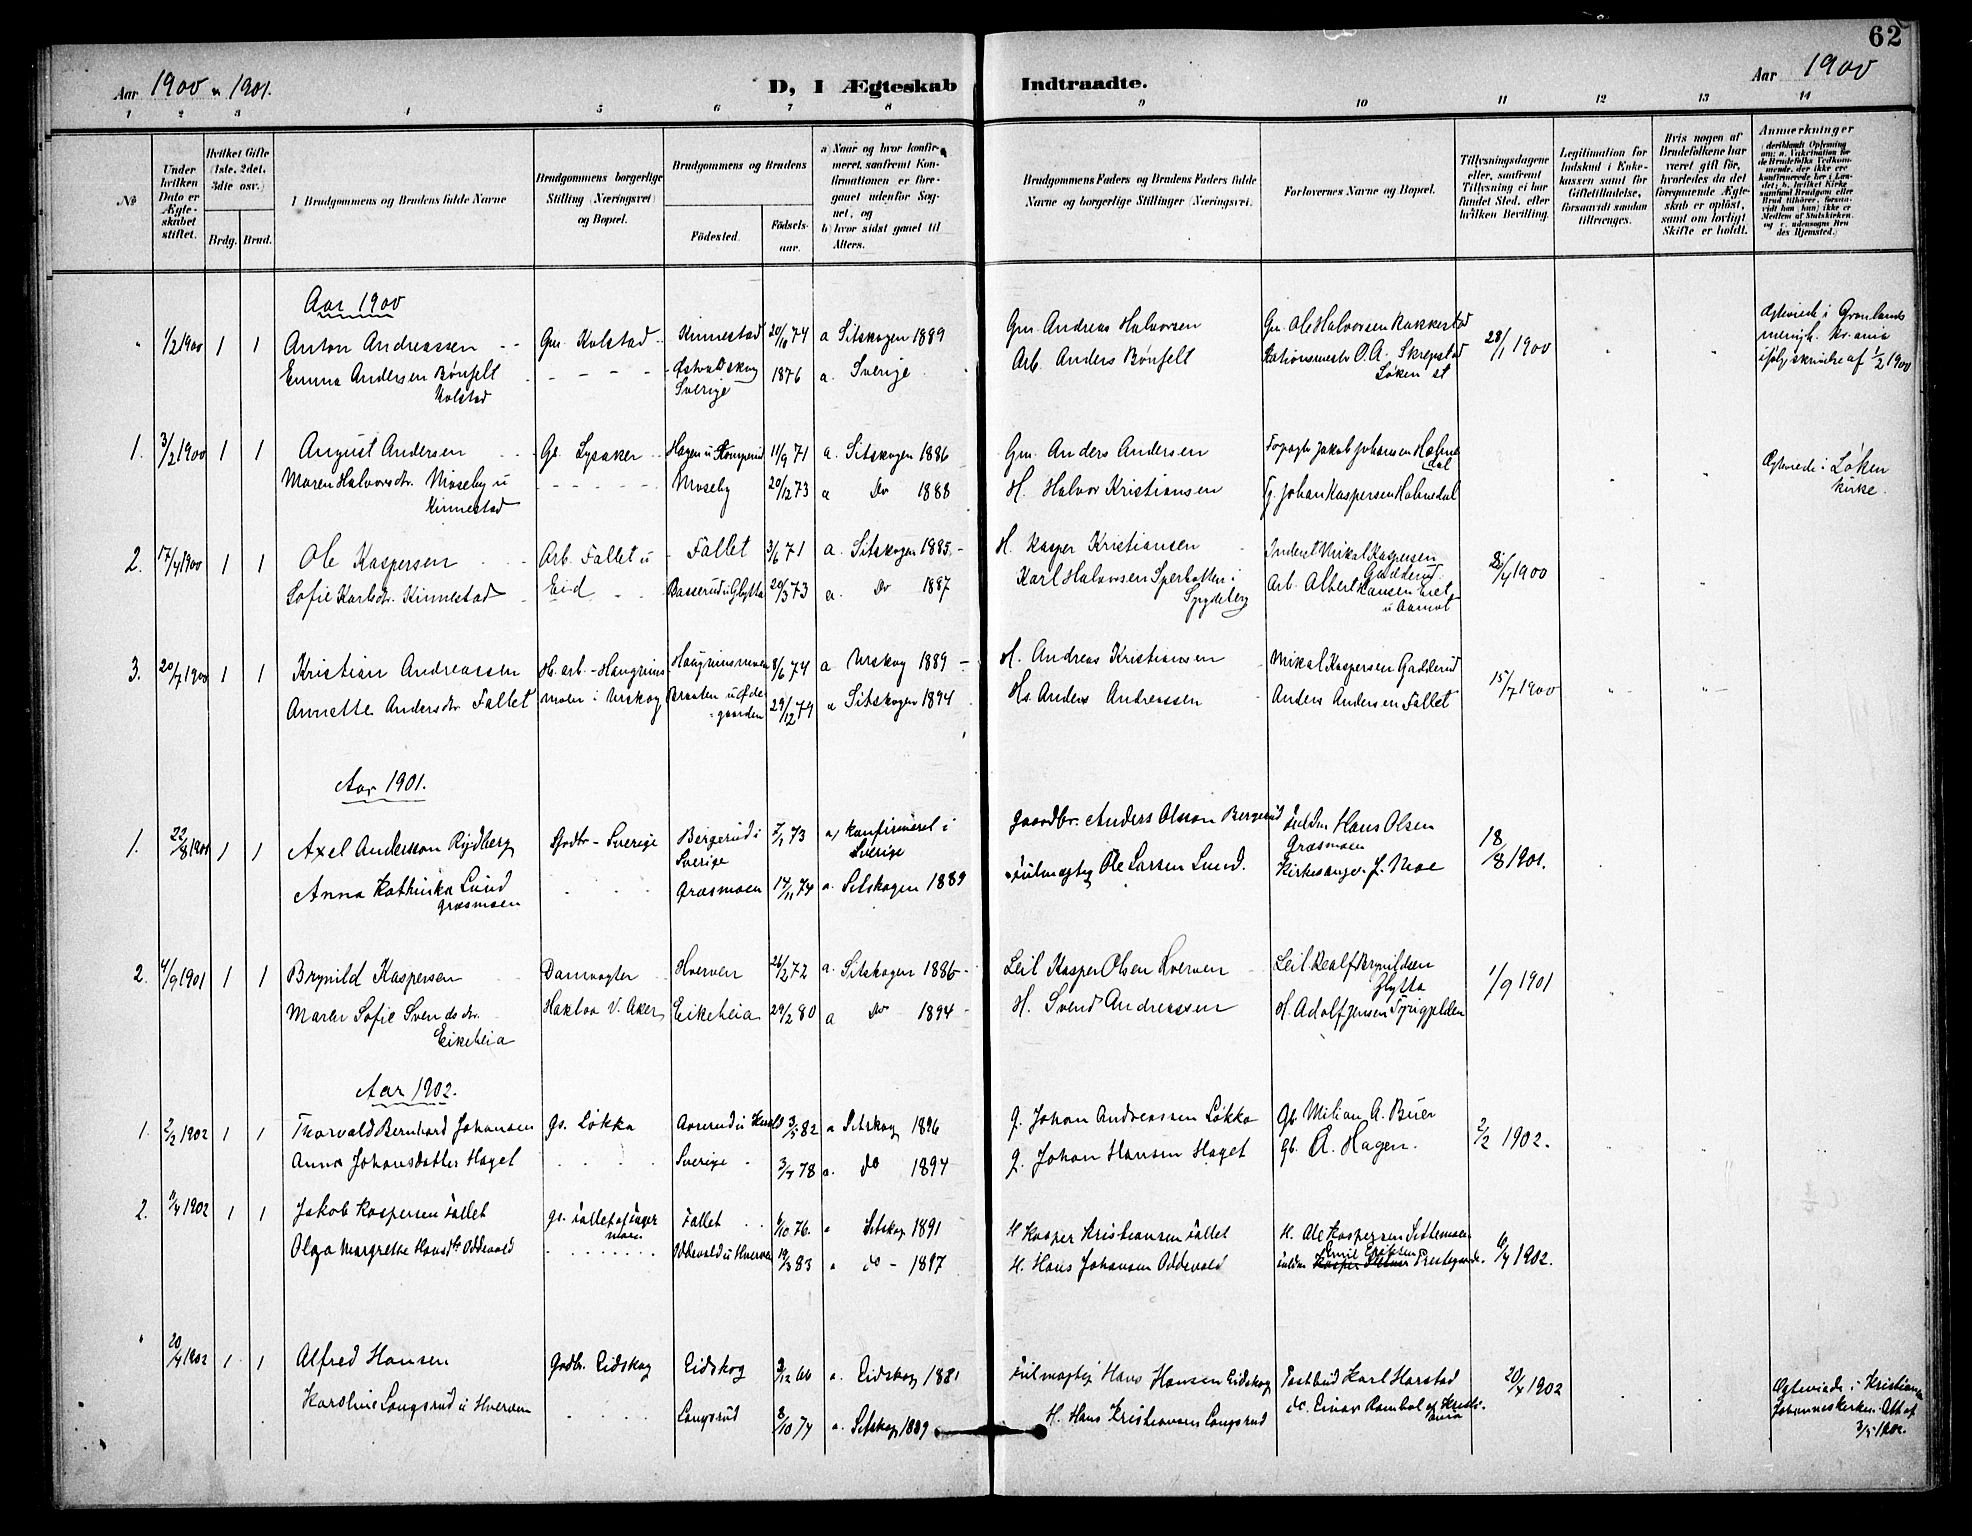 62
Aar 1900 & 1901.
D, I Ægteskab Indtraadte.
Aar 1900
1 2 3 4 5 6 7 8 9 10 11 12 13 14
No
Under hvilken Dato er Ægteskabet stiftet.
Hvilket Gifte (1ste, 2det, 3die osv.)
Brdg. Brud.
I Brudgommens og Brudens fulde Navne
Brudgommens borgerlige Stilling (Næringsvei) og Bopæl.
Brudgommens og Brudens
Fødested. Fødselsaar.
a) Naar og hvor konfirmeret, samfremt Konfirmationen er foregaaet udenfor Sognet, og
b) hvor sidst gaaet til Alters.
Brudgommens Faders og Brudens Faders fulde Navne og borgerlige Stillinger (Næringsvei.
Forlovernes Navne og Bopæl.
Tillysningsdagene eller, samfremt Tillysning ei har fundet Sted, efter hvilken Bevilling.
Legitimation for Indskud i Enkekassen samt for Giftetilladelse, forsaavidt saadan tiltrænges.
Hvis nogen af Brudefolkene har været gift før, hvorledes da det foregaaende Ægteskab er opløst, samt om lovligt Skifte er holdt.
Anmærkninger
Aar 1900
" 1/2 1900 1 1 Anton Andreassen Gm. Kolstad Kinnestad 20/10 74 a Sitskogen 1889 Gm. Andreas Halvorsen Gm. Ole Halvorsen Rakkestad 28/1 1900 Ægteviede i Grønlands
Emma Andersen Bønfelt Sverige 1876 a. Sverige Arb. Anders Bønfelt Stationsmester O. A. Skrepstad menigh. Kr.ania
Kolstad Løken st ifølge skrivelse af 1/2 1900
1. 3/2 1900 1 1 August Andersen Gb. Lysaker Hagen u Komperud 11/9 71 a. Sitskogen 1886 Gm. Anders Andersen Jakob Johansen Holmedal Ægteviede i Løken
Maren Halvorsdtr. Moseby u Moseby 20/12 73 a Do 1888 H. Halvor Kristiansen G. Johan Kaspersen Holmedal kirke.
Kinnestad
2. 17/4 1900 1 1 Ole Kaspersen Arb. Fallet u Fallet 3/6 71 a. Sitskogen 1885. H. Kasper Kristiansen Mikal Kaspersen Gadderud /4 1900
Sofie Karlsdtr. Kinnestad Eid Basserud u Glytta 29/3 73 a. Do 1887 Karl Halvorsen Sperbotten i Spydeberg Arb. Albert Hansen
3. 20/7 1900 1 1 Kristian Andreassen H. arb. Haugrims Haugrimsmoen 8/6 74 a Urskog 1889 H. Andreas Kristiansen Mikal Kaspersen Gadderud 15/7 1900
Annette Andersdtr. Fallet moen i Urskog Braaten u Ødegaarden 29/12 74 a Sitskogen 1894 Hs. Anders Andreassen Anders Andersen Fallet
Aar 1901.
1. 22/8 1901 1 1 Axel Andersson Rydberg Godbr. Sverige Bergerud i Sverige 7/1 73 a) Konfirmeret i Sverige Gaardbr. Anders Olsson Bergerud Hans Olsen Græsmoen 18/8 1901.
Anna Kathinka Lund Græsmoen Græsmoen 14/11 74 a. Sitskogen 1889 Fuldmægtig Ole Larsen Lund. Kirkesanger J. Noe
2. 4/9 1901 1 1 Brynild Kaspersen Damvogter Hverven 26/2 72 a. Sitskogen 1886 Leil Kasper Olsen Hverven Leil Realf Brynildsen Glytta 1/9 1901
Maren Sofie Svendsdtr. Haktoa V. Aker Eikeheia 29/2 80 a Do 1894 H. Svend Andreassen H. Adolf Jensen
Eikeheia
Aar 1902.
1. 2/2 1902 1 1 Thorvald Bernhard Johansen Gs. Løkka Aamrud u Kinnestad 3/5 82 a Sitskog 1896 G. Johan Andreassen Løkka Gb. Milian A. Buer 2/2 1902.
Anna Johansdatter Haget Sverige 3/7 78 a. do 1894 G. Johan Hansen Haget Gb. A. Hagen.
2. 11/4 1902 1 1 Jakob Kaspersen Fallet Fallet 6/10 76. a Sitskog 1891 H Kasper Kristiansen Fallet H. Ole Kaspersen Settemoen 6/4 1902.
Olga Margrethe Hansdtr Oddevald Oddevald u Hverven 19/3 83 a do - 1897 H. Hans Johansen Oddevald Emil Eriksen Prestegaarden.
" 20/4 1902 1 1 Alfred Hansen Grdbr. Eidskog Eidskog 2/12 66 a. Eidskog 1881 Fuldmægtig Hans Hansen Eidskog Postbud Karl Harstad 20/4 1902 Ægteviede i Kristiania
Karoline Langsrud u Hverven Langsrud 8/10 74 a. Sitskog 1889 H. Hans Kristiansen Langsrud do. Einar Rambøl af Kristiania Johanneskirken. Att af
3/5 1902.